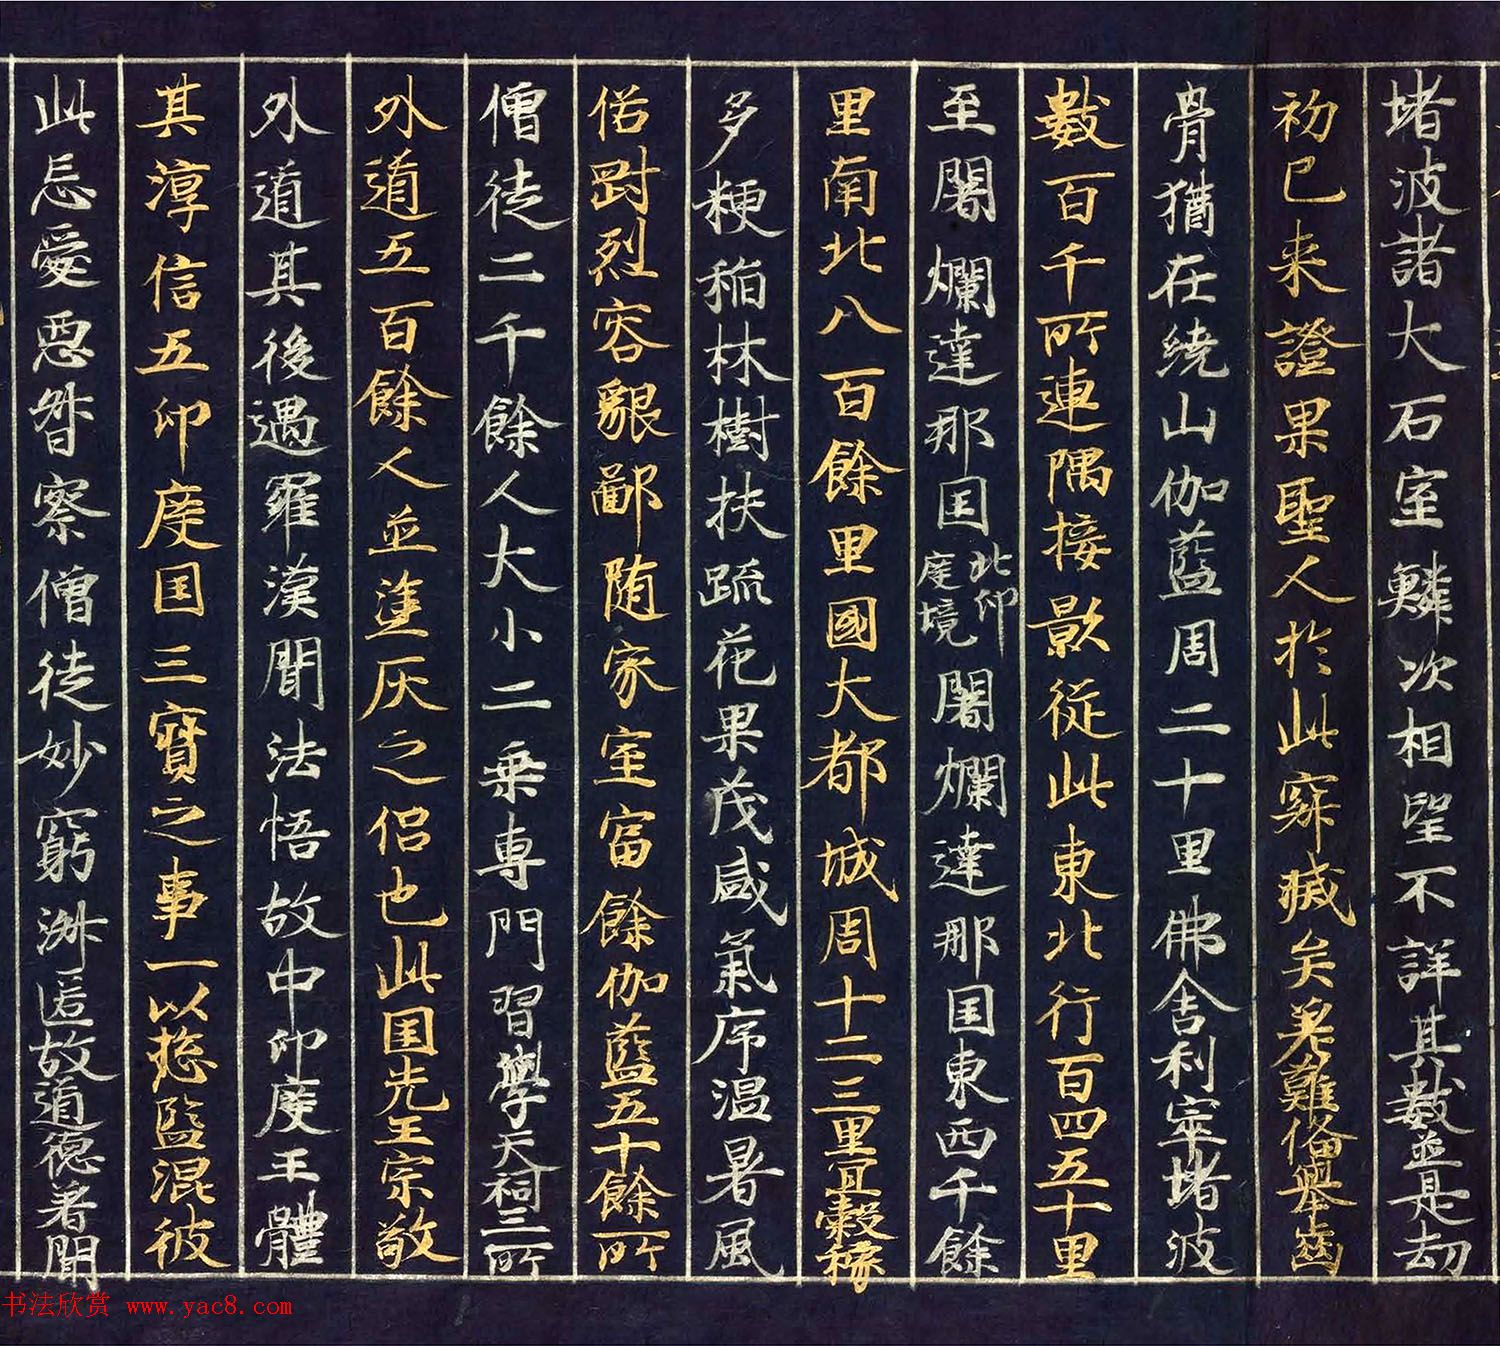 堵波諸大石室鱗次相望不詳其數並是劫
初已来證果聖人於此寂滅矣差難俻舉齒
骨猶在繞山伽藍周二十里佛舍利窣堵波
數百千所連隅接影従此東北行百四五十里
至闍爛達那国北印度境闍爛達那国東西千餘
里南北八百餘里國大都城周十二三里宜穀稼
多粳稲林樹扶疏花果茂盛氣序温暑風
俗剛烈容貌鄙随家室富餘伽藍五十餘所
僧徒二千餘人大小二乗専門習學天祠三所
外道五百餘人並塗灰之侣也此国先王宗敬
外道其後遇羅漢聞法悟故中印度王體
其淳信五印度国三寶之事一以揔監混彼
此忘愛悪督察僧徒妙窮淋匿故道德著聞
书法欣赏 www.yac8.com